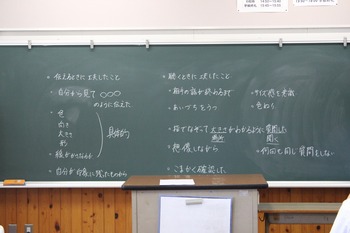 伝えるときに工夫したこと
自分から見て 〇〇〇
のように伝えた
色
向き
大きさ
形
線が
自分が印象に残ったものから
具体的
聴くときに工夫したこと
相手の話が終わるまで
あいづちをうつ
指でなぞって大きさがわかるように質問した
場所
聞く
想像しながら
こまかく確認した
サイズ感を意識
色ぬり
何回も同じ質問をしない